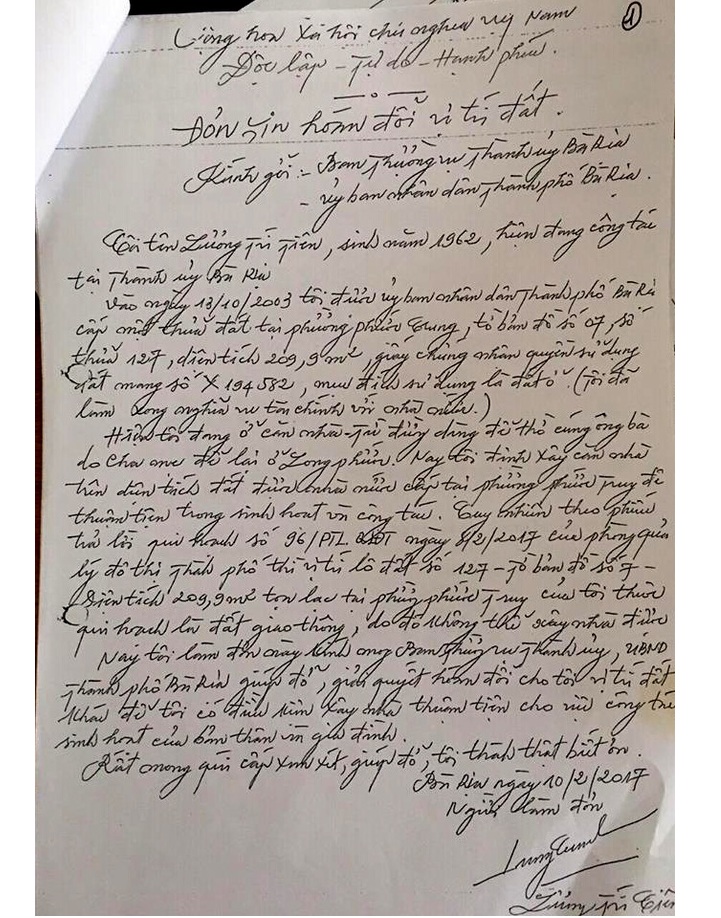 ①
Cộng hòa xã hội chủ nghĩa Việt Nam
Độc lập - Tự do - Hạnh phúc.
Đơn xin hoán đổi vị trí đất.
Kính gởi: - Ban Thường vụ Thành ủy Bà Rịa
- Ủy ban nhân dân Thành phố Bà Rịa.
Tôi tên Lương Trí Tiên, sinh năm 1962, hiện đang công tác
tại Thành ủy Bà Rịa
Vào ngày 13/10/2003 tôi được ủy ban nhân dân Thành phố Bà Rịa
cấp một thửa đất tại phường phước Trung, tờ bản đồ số 07, số
thửa 127, diện tích 209,9m², giấy chứng nhận quyền sử dụng
đất mang số X 194582, mục đích sử dụng là đất ở. (Tôi đã
làm xong nghĩa vụ tài chính với nhà nước.)
Hiện tôi đang ở căn nhà từ đường dùng để thờ cúng ông bà
do cha mẹ để lại ở Long phước. Nay tôi định xây căn nhà
trên diện tích đất được nhà nước cấp tại phường phước Trung để
thuận tiện trong sinh hoạt và công tác. Tuy nhiên theo phiếu
trả lời qui hoạch số 96/PTL QLĐT ngày 8/2/2017 của phòng quản
lý đô thị Thành phố thì vị trí lô đất số 127 - Tờ bản đồ số 7 -
Diện tích 209,9m² tọa lạc tại phường phước Trung của tôi thuộc
qui hoạch là đất giao thông, do đó không thể xây nhà được
Nay tôi làm đơn này kính mong Ban Thường vụ Thành ủy, UBND
Thành phố Bà Rịa giúp đỡ, giải quyết hoán đổi cho tôi vị trí đất
khác để tôi có điều kiện xây nhà thuận tiện cho việc công tác
sinh hoạt của bản thân và gia đình.
Rất mong quí cấp xem xét, giúp đỡ, tôi thành thật biết ơn.
Bà Rịa ngày 10/2/2017
Người làm đơn
Lương Trí Tiên